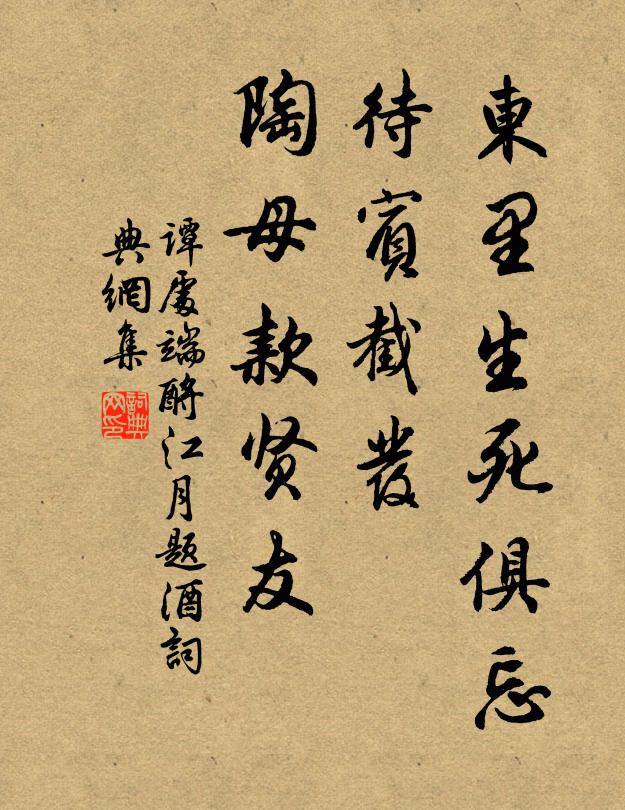 東里生死俱忘
待賓截發
陶母款贤友
谭處端酹江月题酒詞
典網集
詞典
网印